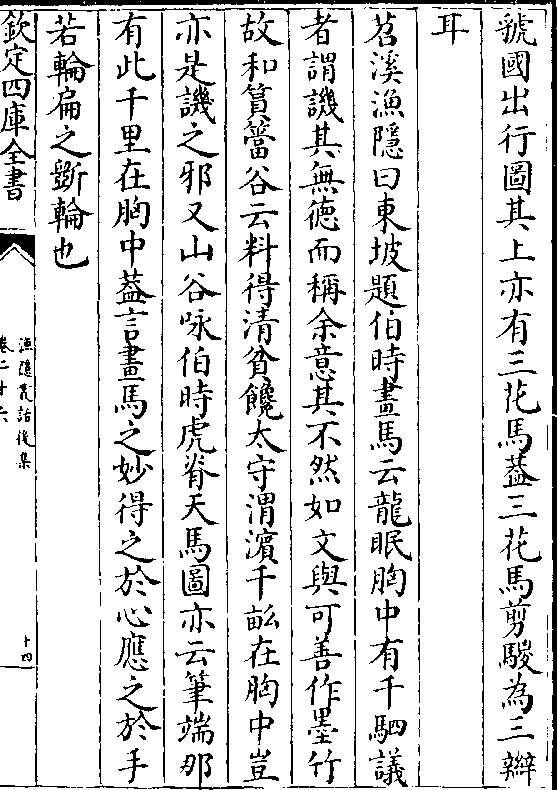 虢國出行圖其上亦有三花馬葢三花馬剪騣為三辮
耳
苕溪漁隱曰東坡題伯時畫馬云龍眠胸中有千駟議
者謂譏其無德而稱余意其不然如文與可善作墨竹
故和篔簹谷云料得清貧饞太守渭濵千畝在胸中豈
亦是譏之邪又山谷咏伯時虎脊天馬圖亦云筆端那
有此千里在胸中葢言畫馬之妙得之於心應之於手
若輪扁之斵輪也
欽定四庫全書
漁隱叢話後集
卷二十六
十四